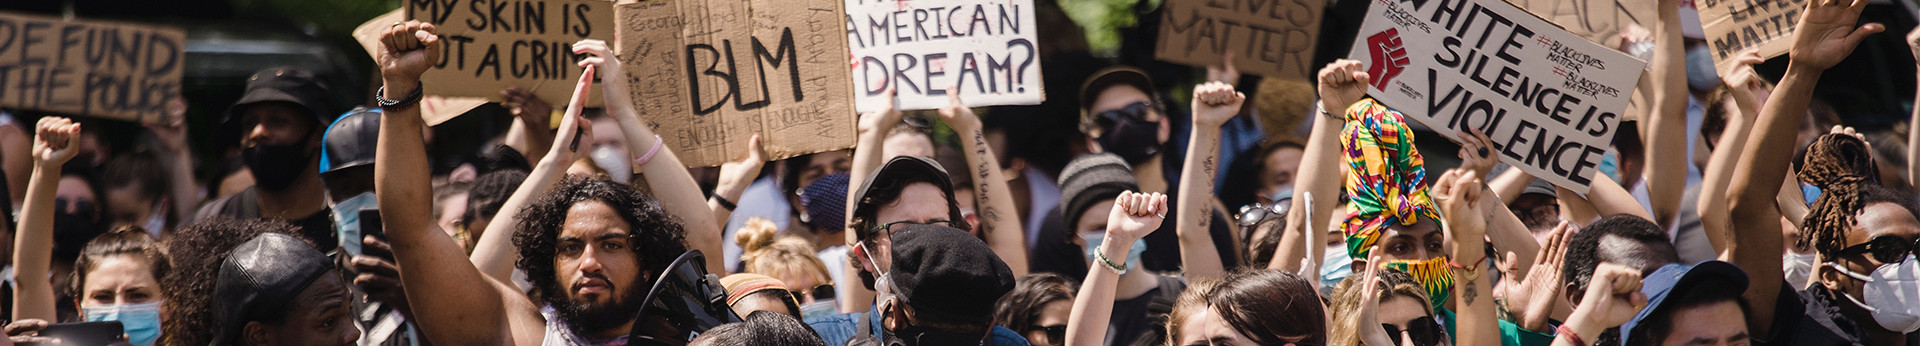 DEFUND
THE POLICE
MY SKIN IS
OT A CRIM
George Floyd
BLM
ENOUGH IS ENOUGH
Ahmaud Arbery
AMERICAN
DREAM?
LIVES
MATTER
#BLACKLIVES
MATTER
WHITE
SILENCE IS
VIOLENCE
#BLACKLIVES
MATTER
#BLACKLIVES
MATTER
LIVES
MATTE